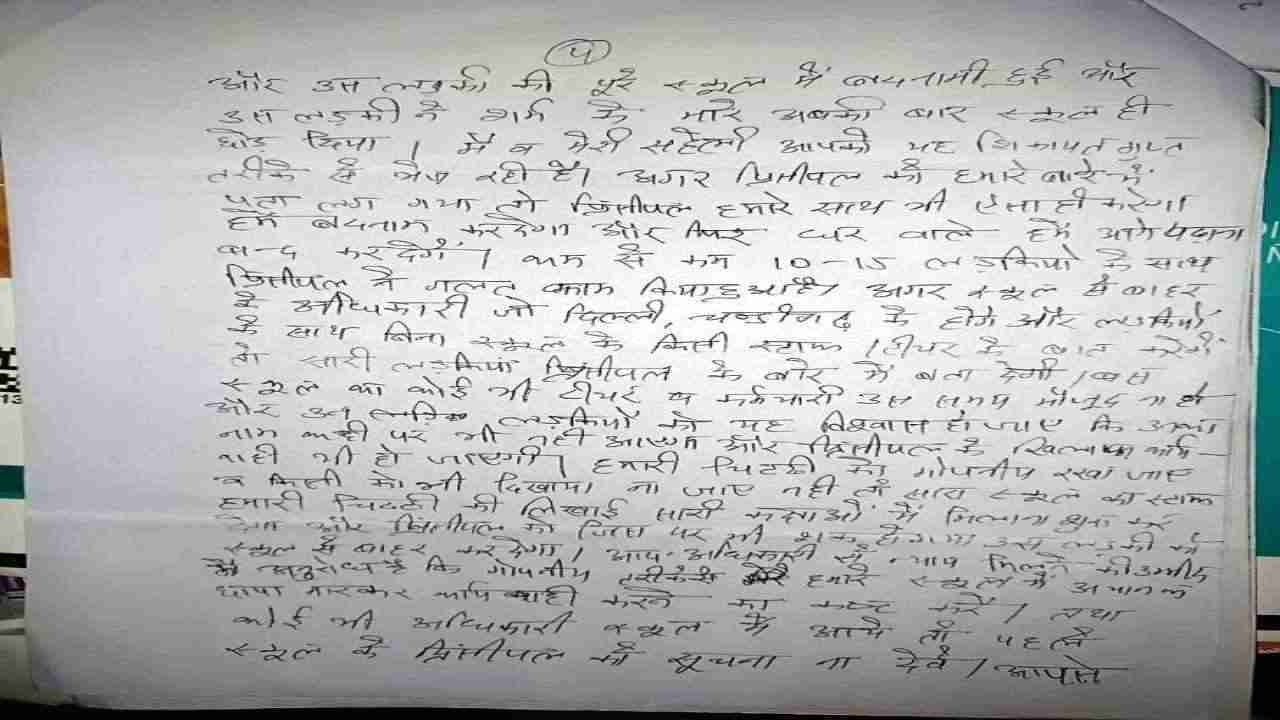 ५
और उस लड़की की पूरे स्कूल में बदनामी हुई और
उस लड़की ने शर्म के मारे अबकी बार स्कूल ही
छोड़ दिया। मैं व मेरी सहेली आपको यह शिकायत गुप्त
तरीके से भेज रही हैं। अगर प्रिंसीपल को हमारे बारे में
पता लग गया तो प्रिंसीपल हमारे साथ भी ऐसा ही करेगा
हमें बदनाम कर देगा और फिर घर वाले हमें आगे पढ़ाना
बन्द कर देगें। कम से कम 10-15 लड़कियों के साथ
प्रिंसीपल ने गलत काम किया हुआ है। अगर स्कूल से बाहर
के अधिकारी जो दिल्ली, चण्डीगढ़ के होंगे और लड़कियों
के साथ बिना स्कूल के किसी स्टाफ / टीचर के बात करेगें
तो सारी लड़कियां प्रिंसीपल के बारे में बता देगी। बस
स्कूल का कोई भी टीचर व कर्मचारी उस समय मौजूद ना हो
और उन लड़कियों को यह विश्वास हो जाए कि उनका
नाम कहीं पर भी नहीं आएगा और प्रिंसीपल के खिलाफ कार्य-
वाही भी हो जाएगी। हमारी चिटठी को गोपनीय रखा जाए
व किसी को भी दिखाया ना जाए नहीं तो सारा स्कूल का स्टाफ
हमारी चिटठी की लिखाई सारी कक्षाओं में मिलाना शुरू कर
देगा और प्रिंसीपल को जिस पर भी शक हो गया उस लड़की को
स्कूल से बाहर कर देगा। आप अधिकारी से न्याय मिलने की उम्मीद
अनुरोध है कि गोपनीय तरीके से हमारे स्कूल में अचानक
छापा मारकर कार्यवाही करने का कष्ट करें। तथा
कोई भी अधिकारी स्कूल में आये तो पहले
स्कूल के प्रिंसीपल को सूचना ना देवें। आपसे